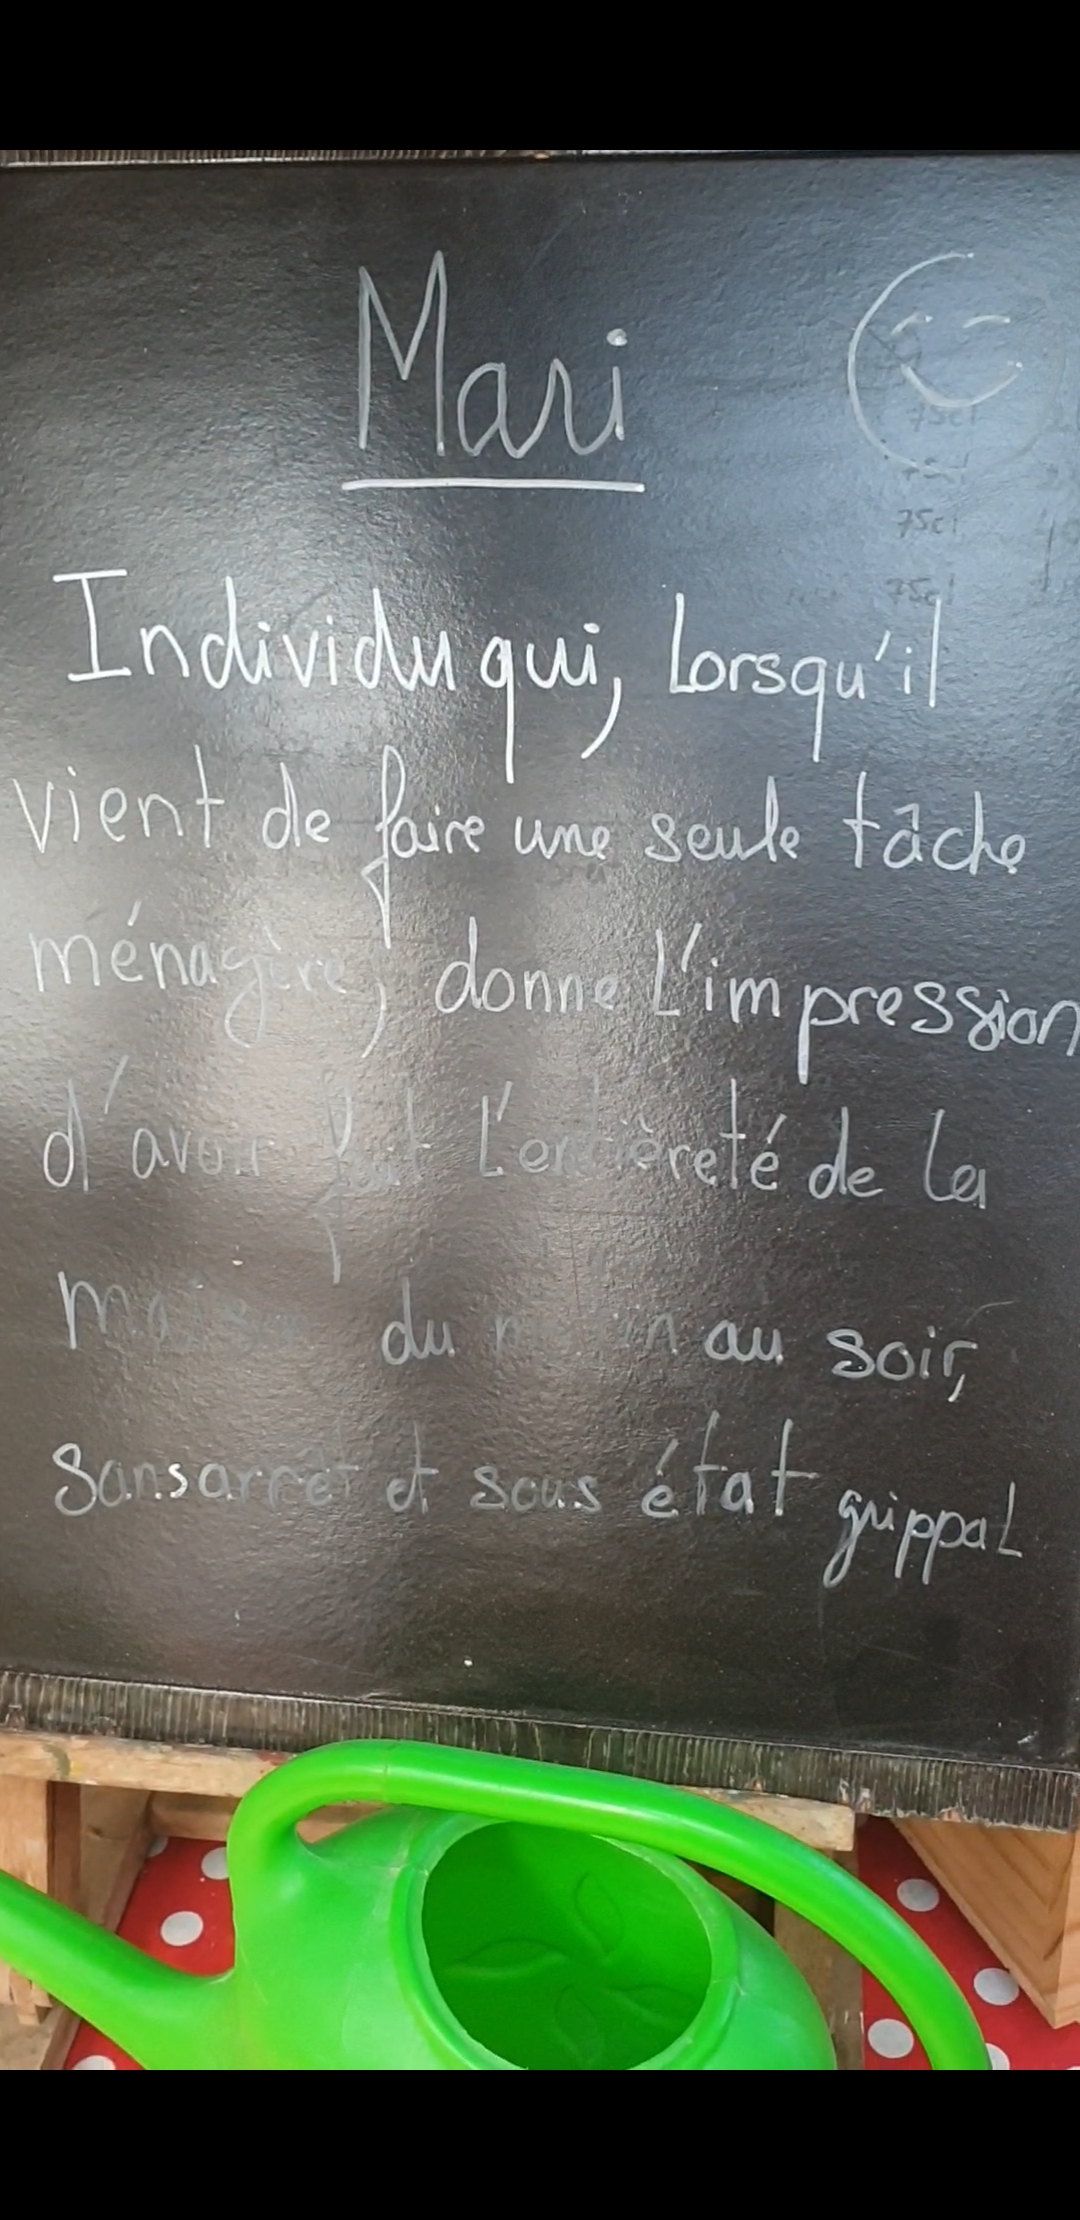 Mari
75cl
75cl
75cl
75cl
Individu qui, Lorsqu'il
vient de faire une seule tâche
ménagère, donne L'impression
d'avoir fait L'entièreté de la
maison du matin au soir,
sans arrêt et sous état grippal